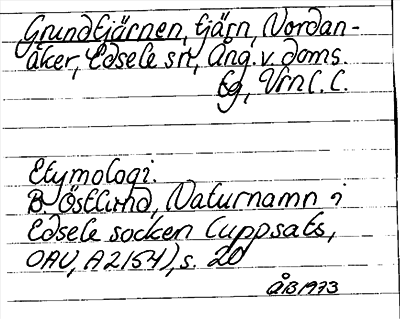 Grundtjärnen, tjärn, Nordan-
åker, Edsele sn, Ång. v. doms.
tg, Vrnl. L.
Etymologi.
B Östlund, Naturnamn i
Edsele socken (uppsats,
OAU, A2154), s. 20
ÅB 1973